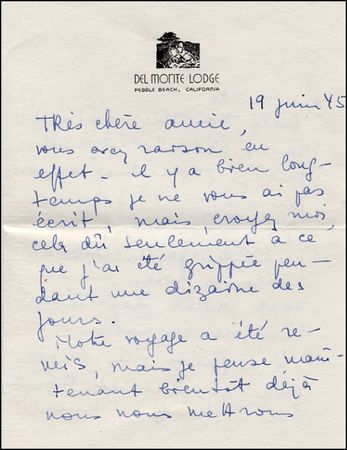 DEL MONTE LODGE
PEBBLE BEACH, CALIFORNIA
19 juin 45
Très chère amie,
vous avez raison en
effet - il y a bien long-
temps je ne vous ai pas
écrit, mais, croyez moi,
cela dû seulement à ce
que j'ai été grippée pen-
dant une dizaine des
jours.
Notre voyage a été re-
mis, mais je pense main-
tenant bientôt déjà
nous nous mettrons